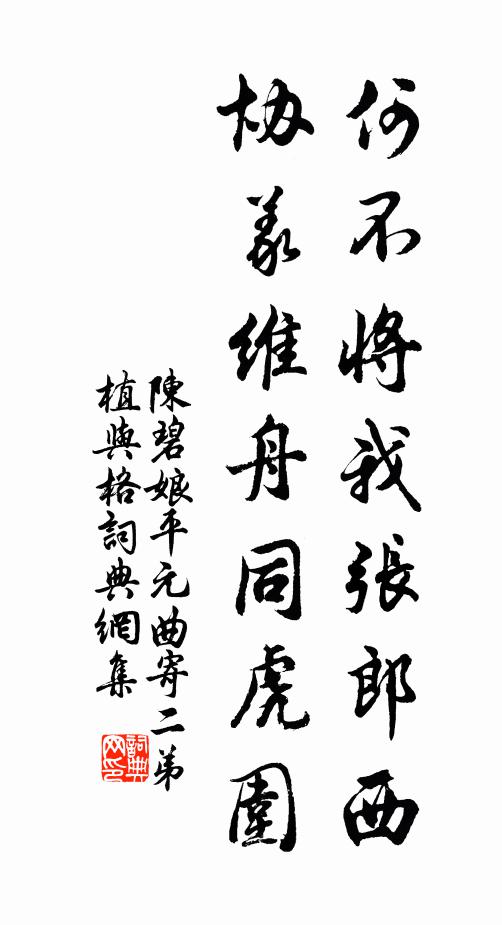 何不將我張郎西
協義維舟同虎圍
陳碧娘平元曲寄二弟
植與格詞典網集
詞典
网印